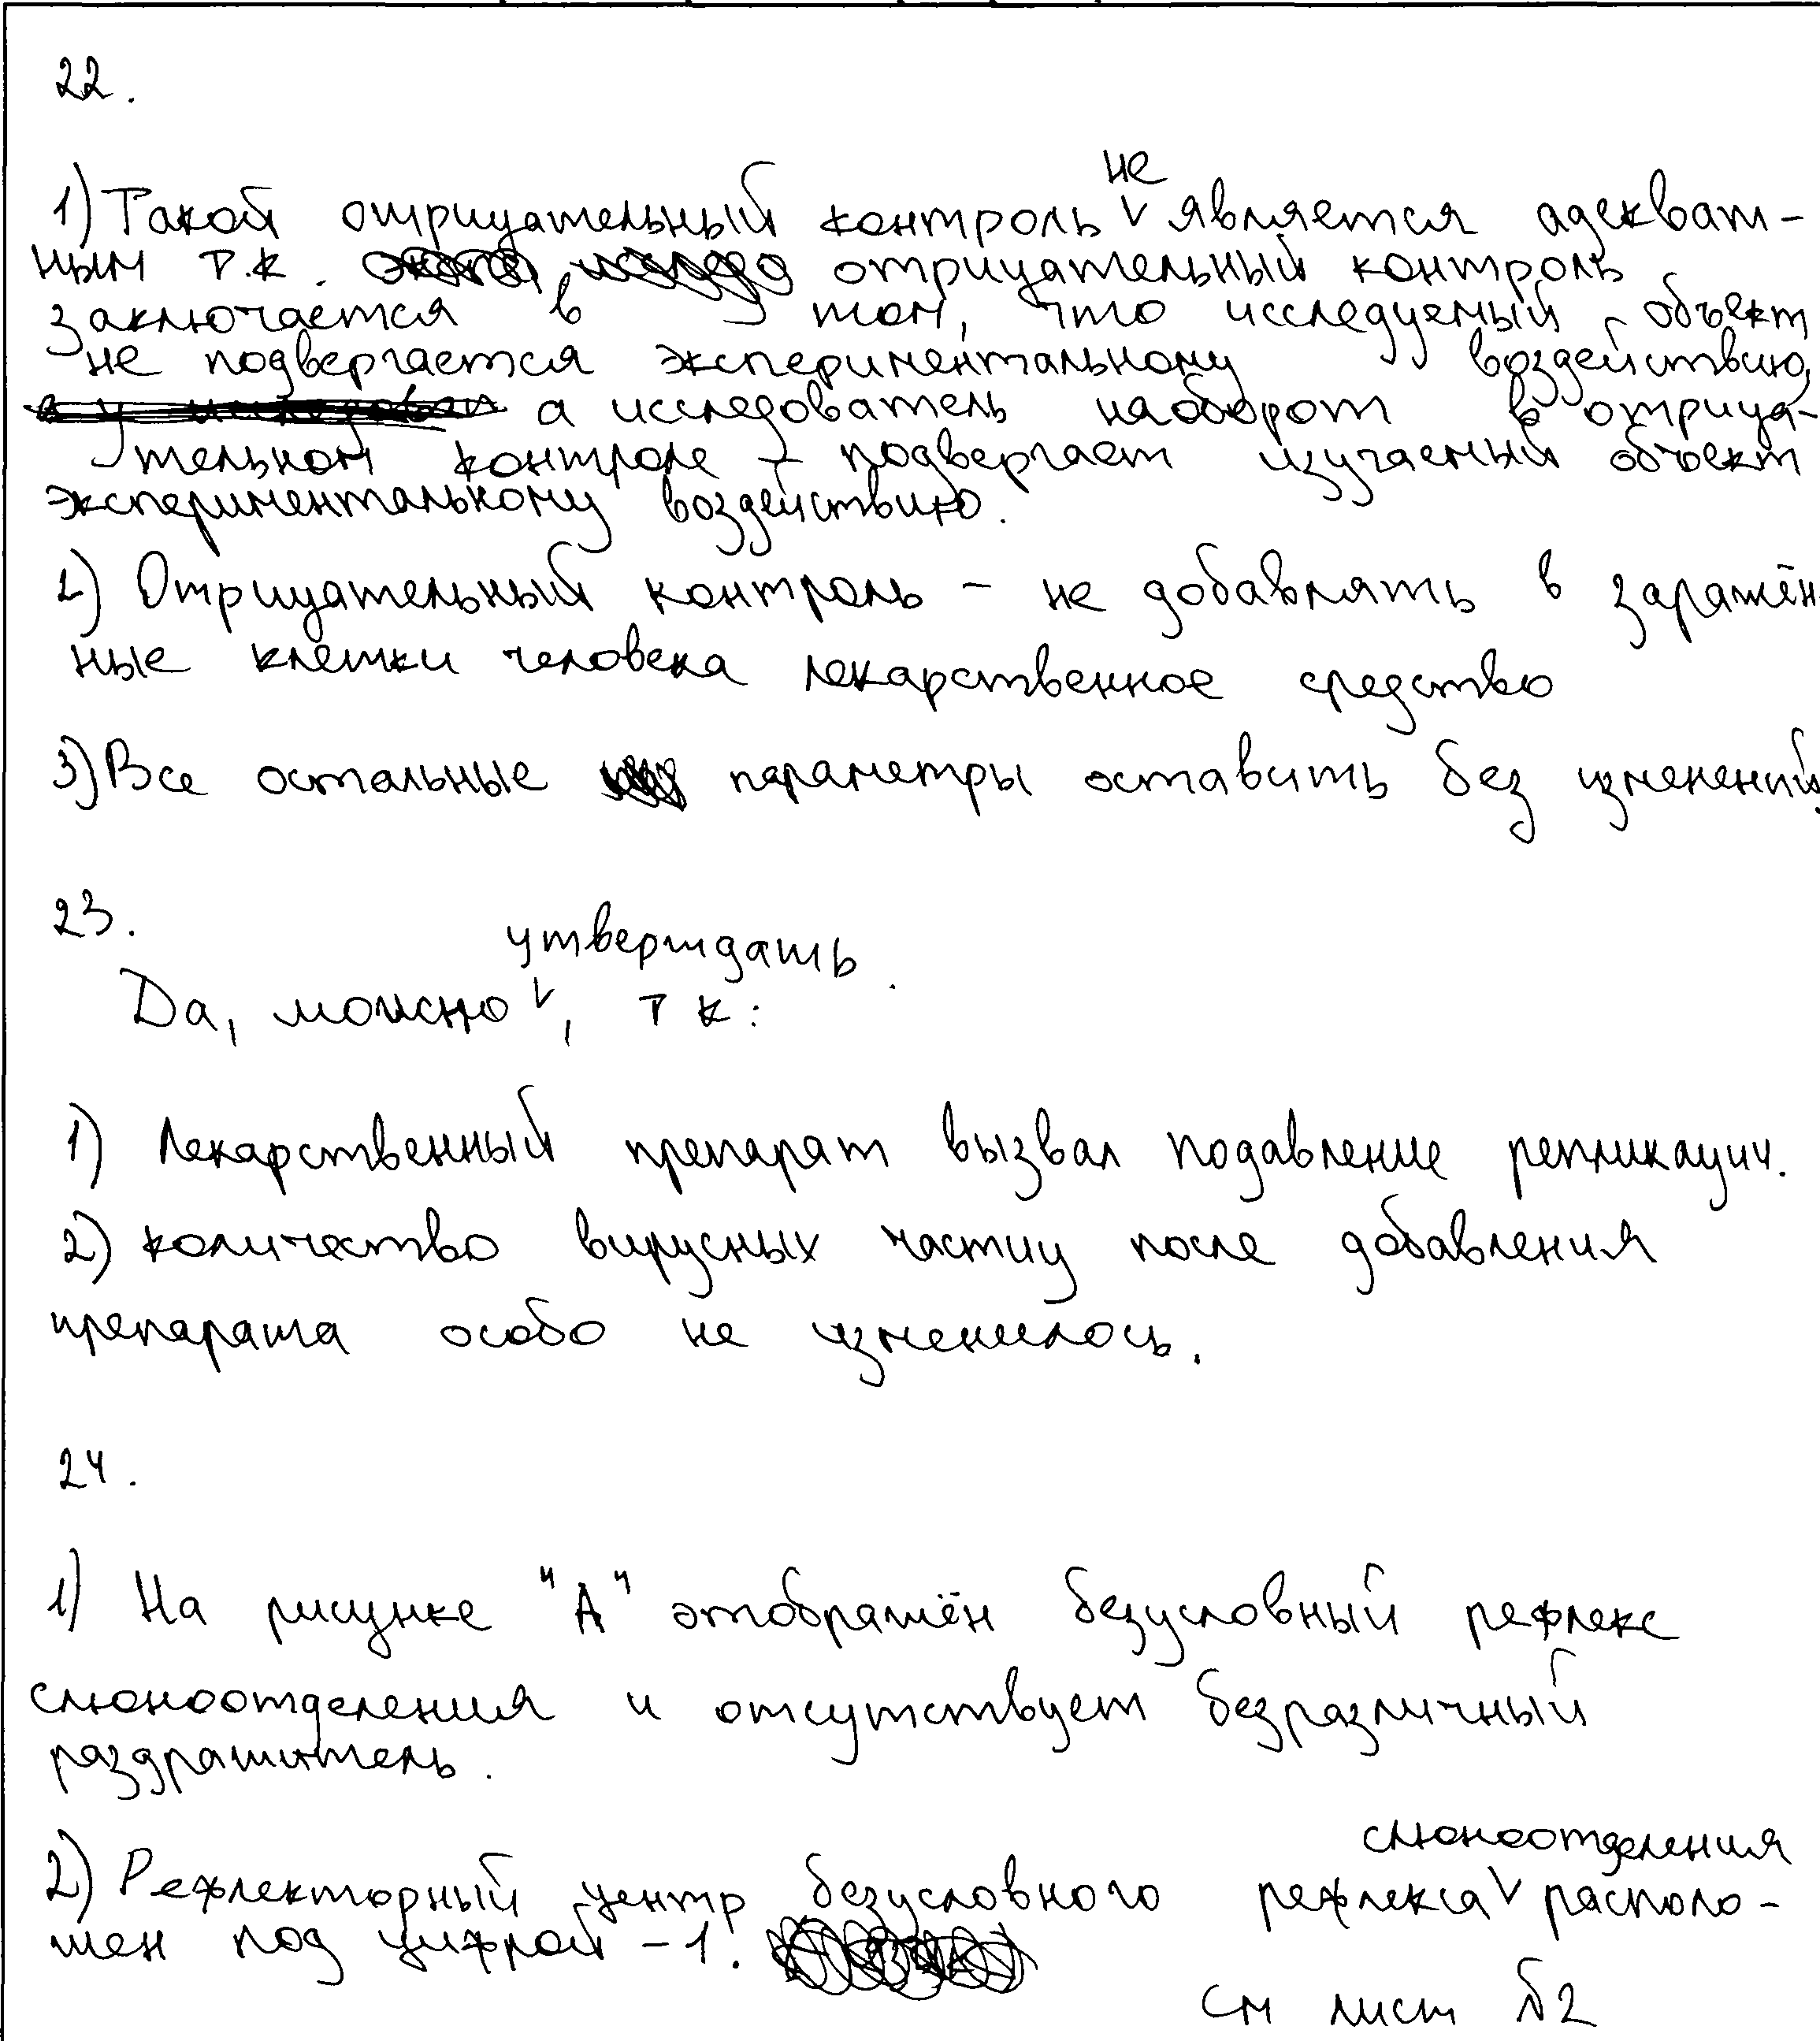 22.
1) Такой отрицательный контроль не является адекват-
ным т.к. отрицательный контроль
заключается в том, что исследуемый объект
не подвергается экспериментальному воздействию,
а исследователь наоборот в отрица-
тельном контроле - подвергает изучаемый объект
экспериментальному воздействию.
2) Отрицательный контроль - не добавлять в заражён-
ные клетки человека лекарственное средство
3) Все остальные параметры оставить без изменений.
23.
Да, можно утверждать, т к:
1) Лекарственный препарат вызвал подавление репликации.
2) количество вирусных частиц после добавления
препарата особо не изменилось.
24.
1) На рисунке "А" отображён безусловный рефлекс
слюноотделения и отсутствует безразличный
раздражитель.
2) Рефлекторный центр безусловного рефлекса слюноотделения располо-
жен под цифрой - 1.
см лист №2